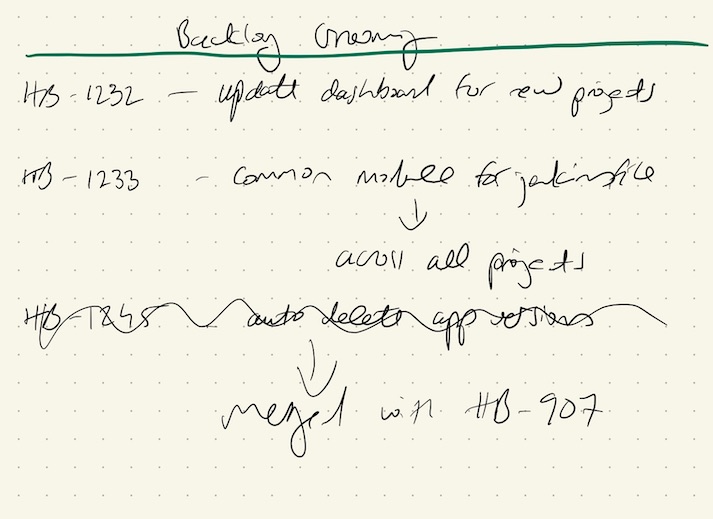 Backlog Grooming
HB-1232 — update dashboard for new projects
HB-1233 - common module for jenkinsfile
↓
across all projects
HB-1245 - auto delete app versions
↓
merged with HB-907